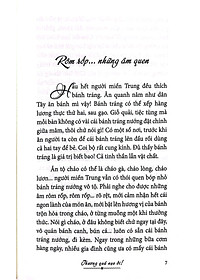 Rôm rốp... những âm quen
Hầu hết người miền Trung đều thích
bánh tráng. Ăn quanh năm như dân
Tây ăn bánh mì vậy! Bánh tráng có thể xếp hàng
lương thực thứ hai, sau gạo. Giỗ quải, tiệc tùng mà
mỗi bàn không có vài cái bánh tráng nướng đặt chính
giữa mâm, thôi chữ nói gì! Có một số nơi, trước khi
ăn người ta còn để cái bánh tráng lên đầu và dùng
cả hai tay đập bể. Coi bộ rất cung kính. Đủ thấy
bánh tráng là giá trị biết bao! Cả tinh thần lẫn vật chất.
Ăn tộ cháo có thể là cháo gà, cháo lòng, cháo
lươn... hoặc thậm chí chỉ là cháo trắng đi nữa, người
miền Trung vẫn có thói quen bóp nhỏ bánh
tráng nướng vô tộ. Phải nghe cho được những
âm rôm rốp, rôm rốp... rồi mới cảm nhận hết cái
ngon lành của món ăn, mới bật lên hương vị của bánh
trộn hòa trong cháo, ở từng muỗng một khi đưa vô
miệng. Nói chung, ở đâu không biết chứ ngay tại đây,
vô quán bánh canh, bún cá... luôn luôn có sẵn cái
bánh tráng nướng, đi kèm. Ngay trong những bữa cơm
hàng ngày, nhiều gia đình cũng ưa có mấy cái bánh
Thương quá rau ơi!
7